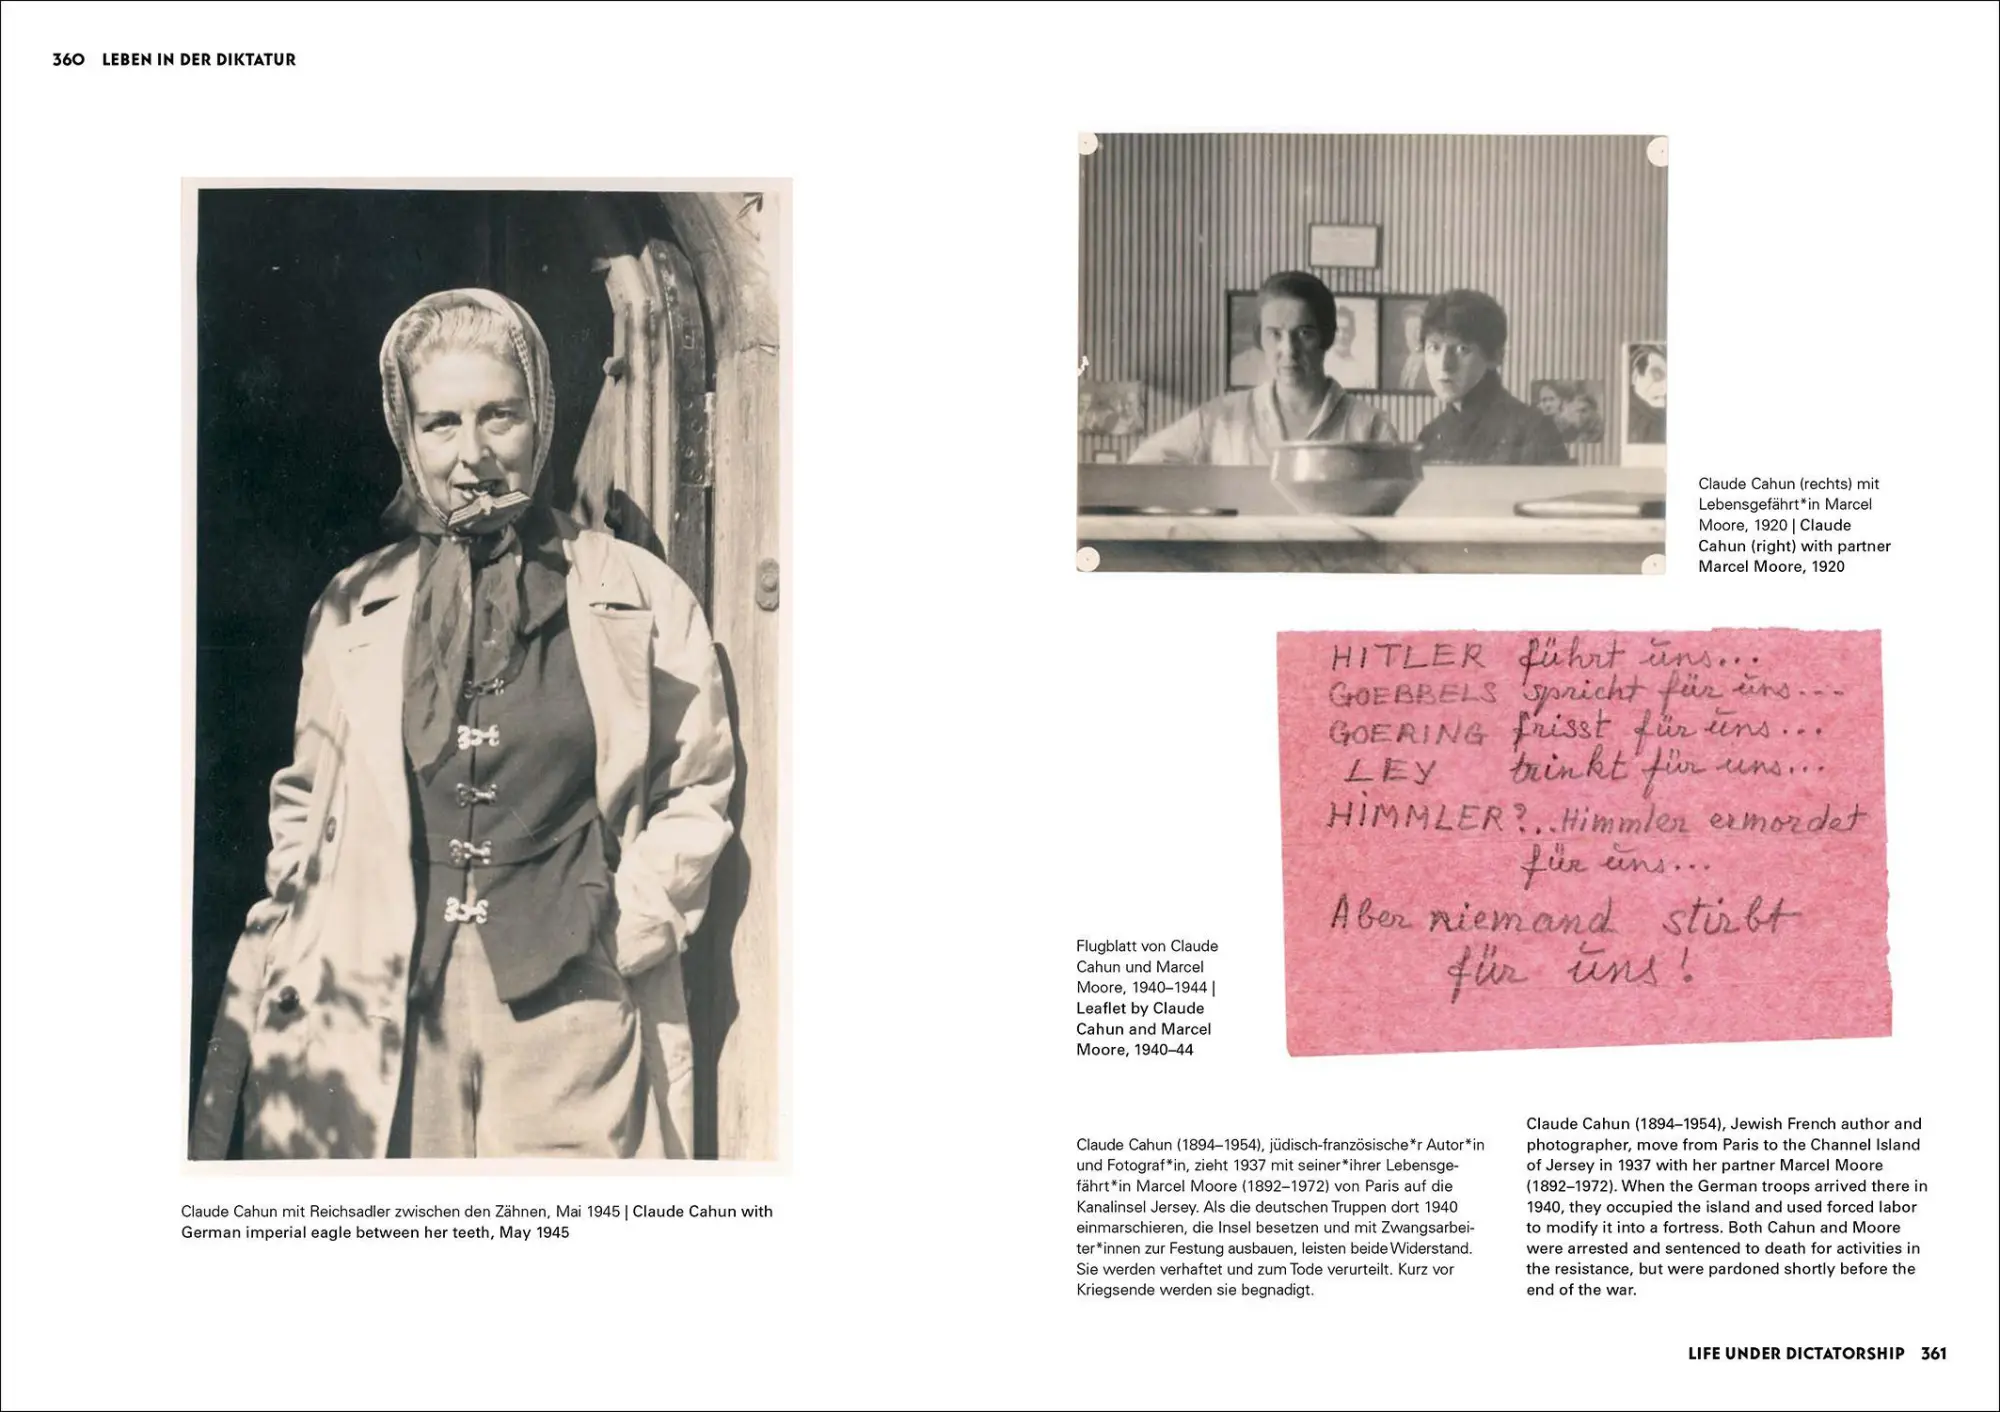 360 LEBEN IN DER DIKTATUR
Claude Cahun mit Reichsadler zwischen den Zähnen, Mai 1945 | Claude Cahun with
German imperial eagle between her teeth, May 1945
Claude Cahun (rechts) mit
Lebensgefährt*in Marcel
Moore, 1920 | Claude
Cahun (right) with partner
Marcel Moore, 1920
HITLER führt uns...
GOEBBELS spricht für uns...
GOERING frisst für uns...
LEY trinkt für uns...
HiMMLER?..Himmler ermordet
für uns...
Aber niemand stirbt
für uns!
Flugblatt von Claude
Cahun und Marcel
Moore, 1940–1944 |
Leaflet by Claude
Cahun and Marcel
Moore, 1940–44
Claude Cahun (1894–1954), jüdisch-französische*r Autor*in
und Fotograf*in, zieht 1937 mit seiner*ihrer Lebensge-
fährt*in Marcel Moore (1892–1972) von Paris auf die
Kanalinsel Jersey. Als die deutschen Truppen dort 1940
einmarschieren, die Insel besetzen und mit Zwangsarbei-
ter*innen zur Festung ausbauen, leisten beide Widerstand.
Sie werden verhaftet und zum Tode verurteilt. Kurz vor
Kriegsende werden sie begnadigt.
Claude Cahun (1894–1954), Jewish French author and
photographer, move from Paris to the Channel Island
of Jersey in 1937 with her partner Marcel Moore
(1892–1972). When the German troops arrived there in
1940, they occupied the island and used forced labor
to modify it into a fortress. Both Cahun and Moore
were arrested and sentenced to death for activities in
the resistance, but were pardoned shortly before the
end of the war.
LIFE UNDER DICTATORSHIP 361